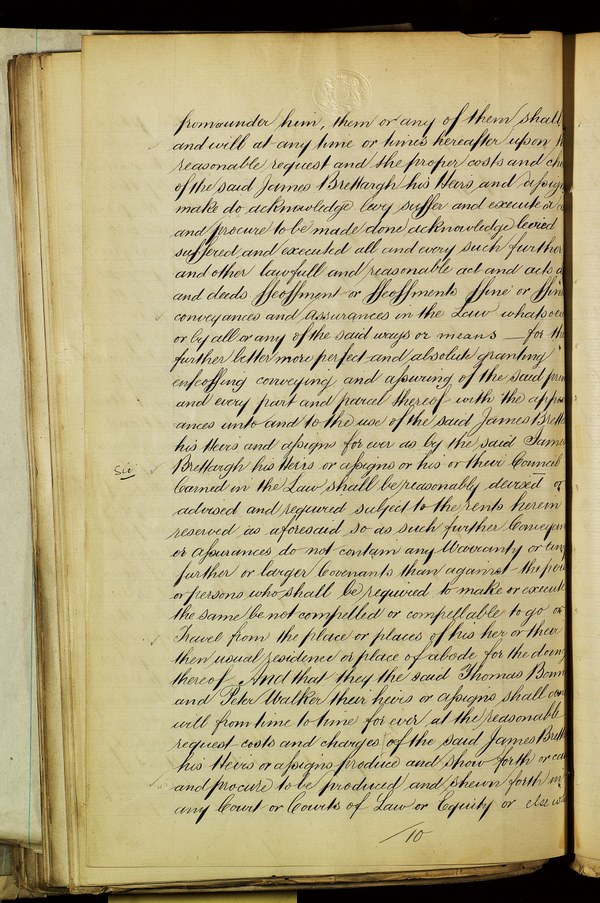 from or under him, them or any of them shall
and will at any time or times hereafter upon
reasonable request and the proper costs and
of the said James Brettargh his Heirs and assigns
make do acknowledge levy suffer and execute or
and procure to be made done acknowledge levied
suffered and executed all and every such further
and other lawfull and reasonable act and acts
and deeds ffeoffment or ffeoffments ffine or ffin
conveyances and assurances in the Law whatsoev
or by all or any of the said ways or means — for the
further better more perfect and absolute granting
enfeoffing conveying and assuring of the said prem
and every part and parcel thereof with the appur
ances unto and to the use of the said James Bretta
his Heirs and assigns for ever as by the said James
Sic
Brettargh his Heirs or assigns or his or their Council
learned in the Law shall be reasonably devised or
advised and required subject to the rents herein
reserved as aforesaid so as such further Conveyan
or assurances do not contain any Warranty or any
further or larger Covenants than against the per
or persons who shall be required to make or execute
the same be not compelled or compellable to go or
Travel from the place or places of his her or their
then usual residence or place of abode for the doing
thereof And that they the said Thomas Bonn
and Peter Walker their heirs or assigns shall
will from time to time for ever at the reasonable
request costs and charges of the said James Brett
his Heirs or assigns produce and show forth or
and procure to be produced and shewn forth in
any Court or Courts of Law or Equity or else
10